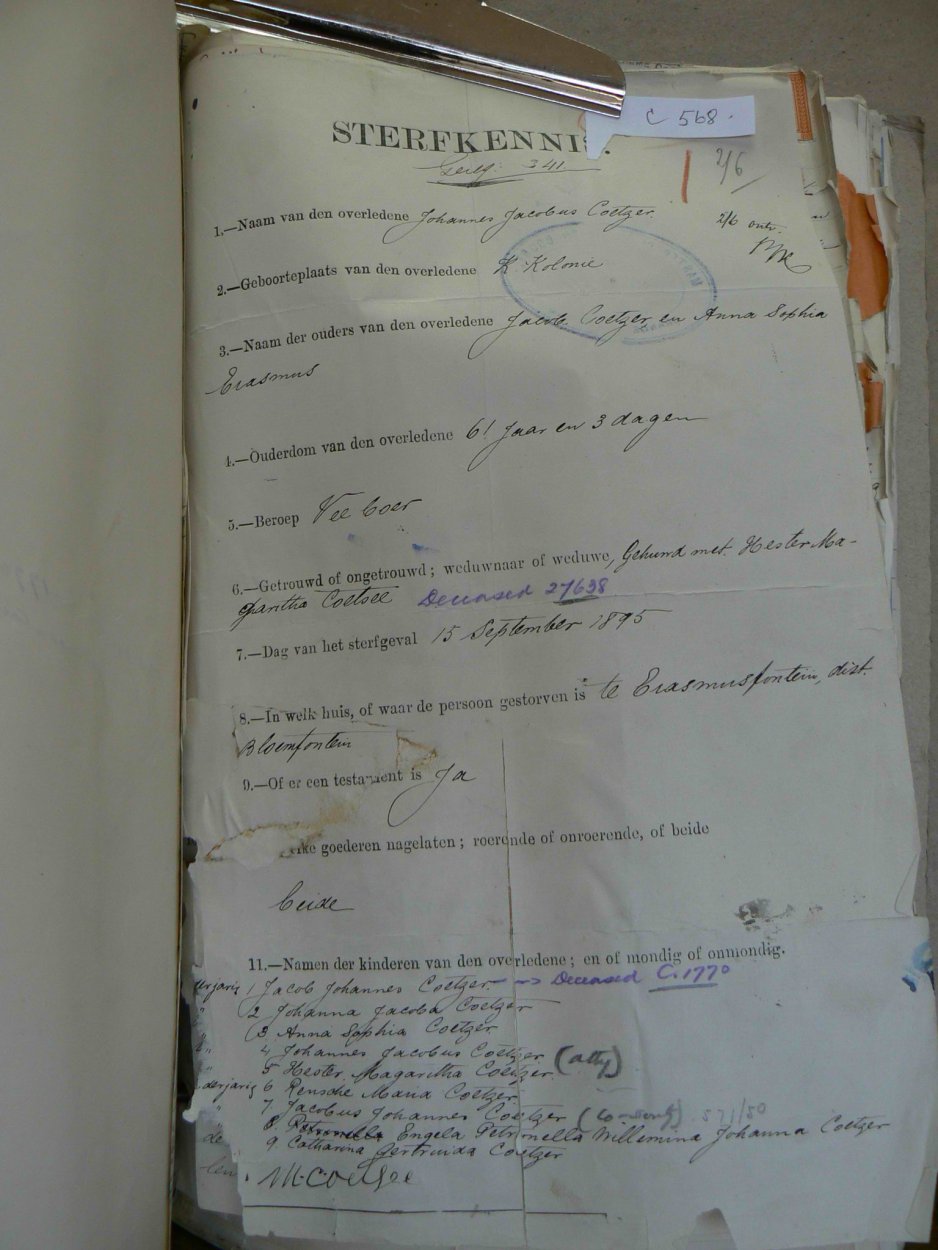 C 568.
STERFKENNIS.
341
2/6
1.—Naam van den overledene Johannes Jacobus Coetzer
2/6
2.—Geboorteplaats van den overledene K Kolonie
3.—Naam der ouders van den overledene Jacob Coetzer en Anna Sophia
Erasmus
4.—Ouderdom van den overledene 61 Jaar en 3 dagen
5.—Beroep Vee boer
6.—Getrouwd of ongetrouwd; weduwnaar of weduwe, Gehuwd met Hester Ma-
garitha Coetsee Deceased 27638
7.—Dag van het sterfgeval 15 September 1895
8.—In welk huis, of waar de persoon gestorven is te Erasmusfontein, dist.
Bloemfontein
9.—Of er een testament is Ja
goederen nagelaten; roerende of onroerende, of beide
beide
11.—Namen der kinderen van den overledene; en of mondig of onmondig.
1 Jacob Johannes Coetzer —> Deceased C.1770
2 Johanna Jacoba Coetzer
3 Anna Sophia Coetzer
4 Johannes Jacobus Coetzer (atty)
5 Hester Magaritha Coetzer
derjarig 6 Rensche Maria Coetzer
7 Jacobus Johannes Coetzer (Consent) 571/50
8 Engela Petronella Willemina Johanna Coetzer
9 Catharina Gertruida Coetzer
M. Coetsee